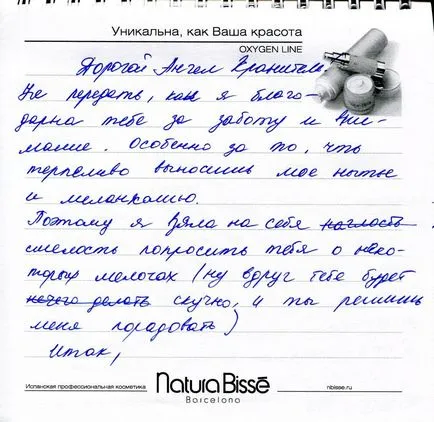 Уникальна, как Ваша красота
OXYGEN LINE
Дорогой Ангел Хранитель,
Не передать, как я благо-
дарна тебе за заботу и вни-
мание. Особенно за то, что
терпеливо выносишь мое нытье
и меланхолию.
Поэтому я взяла на себя наглость
смелость попросить тебя о неко-
торых мелочах (ну вдруг тебе будет
нечего делать скучно, и ты решишь
меня порадовать)
Итак,
Испанская профессиональная косметика
Natura Bissé
Barcelona
nbisse.ru